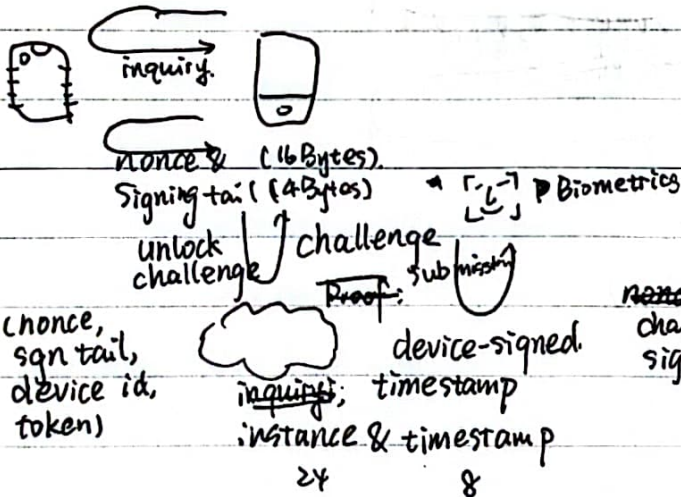 inquiry.
nonce & (16 Bytes).
Signing tail (4 Bytes)
Biometrics
unlock challenge
challenge
submission
Proof:
(nonce,
sgn tail,
device id,
token)
device-signed.
timestamp
inquiry;
instance & timestamp
24 8